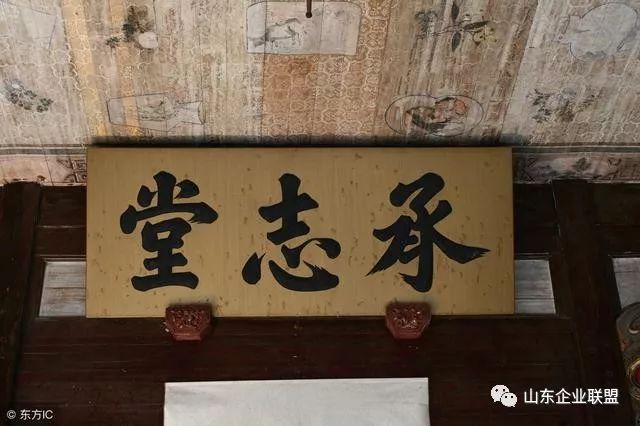 承志堂
山东企业联盟
© 东方IC